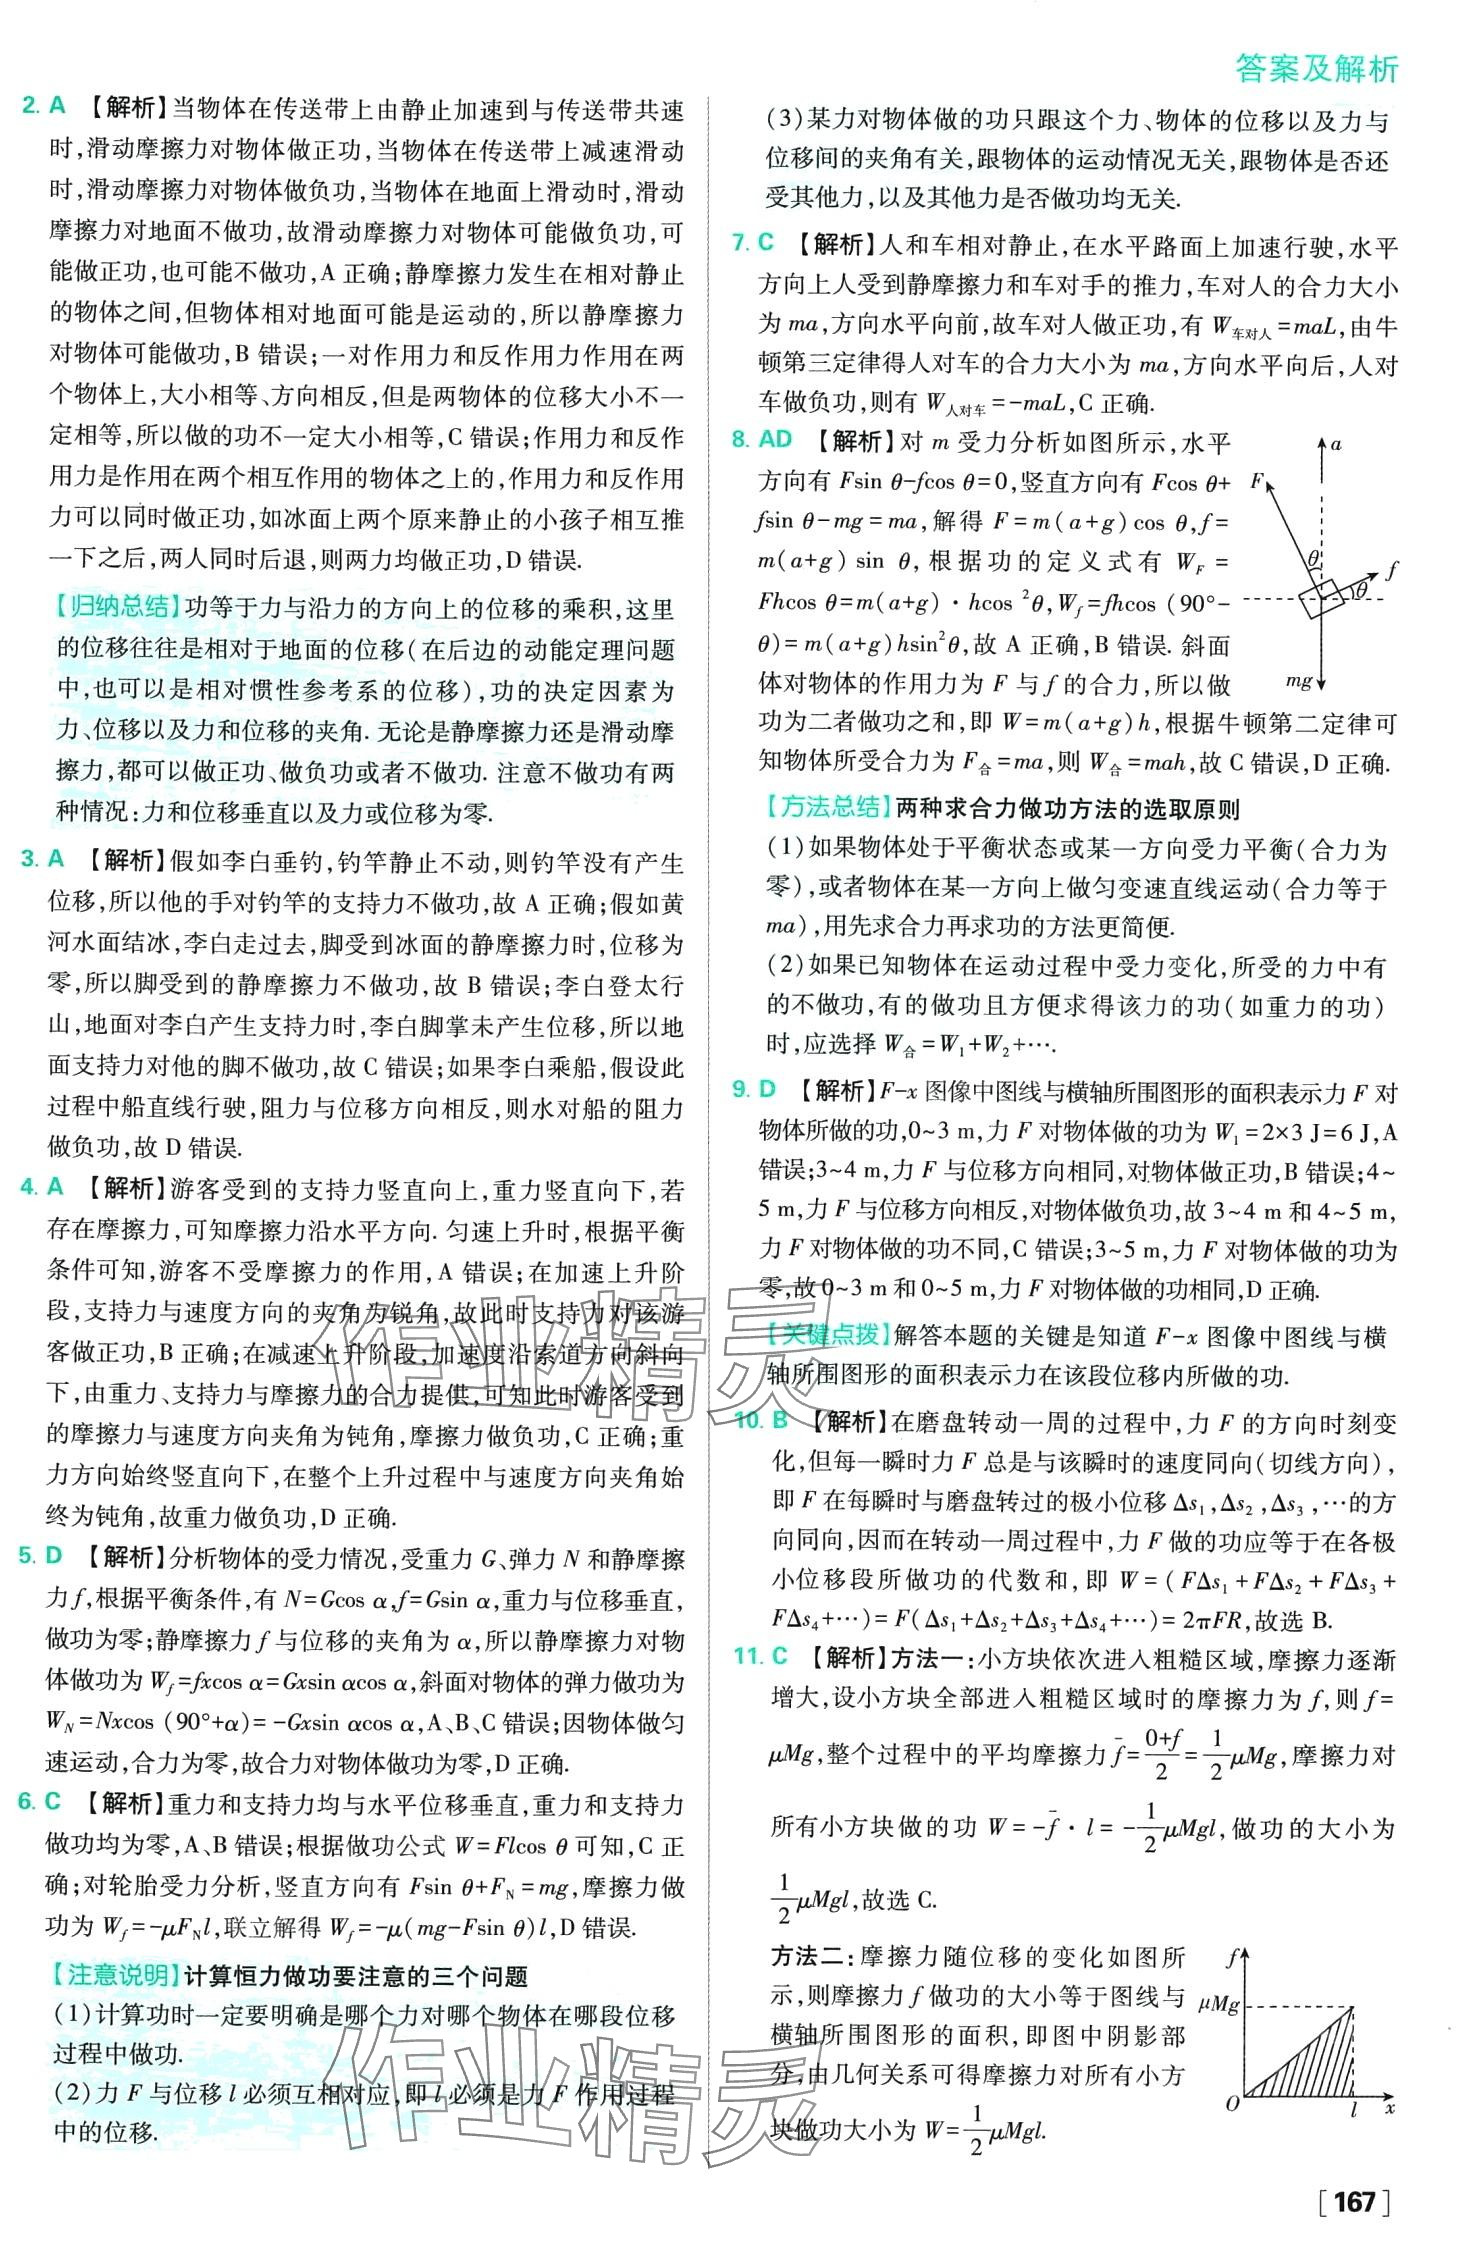 答案及解析
2. A 【解析】当物体在传送带上由静止加速到与传送带共速
时,滑动摩擦力对物体做正功,当物体在传送带上减速滑动
时,滑动摩擦力对物体做负功,当物体在地面上滑动时,滑动
摩擦力对地面不做功,故滑动摩擦力对物体可能做负功,可
能做正功,也可能不做功,A 正确;静摩擦力发生在相对静止
的物体之间,但物体相对地面可能是运动的,所以静摩擦力
对物体可能做功,B 错误;一对作用力和反作用力作用在两
个物体上,大小相等、方向相反,但是两物体的位移大小不一
定相等,所以做的功不一定大小相等,C 错误;作用力和反作
用力是作用在两个相互作用的物体之上的,作用力和反作用
力可以同时做正功,如冰面上两个原来静止的小孩子相互推
一下之后,两人同时后退,则两力均做正功,D 错误.
【归纳总结】功等于力与沿力的方向上的位移的乘积,这里
的位移往往是相对于地面的位移(在后边的动能定理问题
中,也可以是相对惯性参考系的位移),功的决定因素为
力、位移以及力和位移的夹角. 无论是静摩擦力还是滑动摩
擦力,都可以做正功、做负功或者不做功. 注意不做功有两
种情况:力和位移垂直以及力或位移为零.
3. A 【解析】假如李白垂钓,钓竿静止不动,则钓竿没有产生
位移,所以他的手对钓竿的支持力不做功,故 A 正确;假如黄
河水面结冰,李白走过去,脚受到冰面的静摩擦力时,位移为
零,所以脚受到的静摩擦力不做功,故 B 错误;李白登太行
山,地面对李白产生支持力时,李白脚掌未产生位移,所以地
面支持力对他的脚不做功,故 C 错误;如果李白乘船,假设此
过程中船直线行驶,阻力与位移方向相反,则水对船的阻力
做负功,故 D 错误.
4. A 【解析】游客受到的支持力竖直向上,重力竖直向下,若
存在摩擦力,可知摩擦力沿水平方向. 匀速上升时,根据平衡
条件可知,游客不受摩擦力的作用,A 错误;在加速上升阶
段,支持力与速度方向的夹角为锐角,故此时支持力对该游
客做正功,B 正确;在减速上升阶段,加速度沿索道方向斜向
下,由重力、支持力与摩擦力的合力提供,可知此时游客受到
的摩擦力与速度方向夹角为钝角,摩擦力做负功,C 正确;重
力方向始终竖直向下,在整个上升过程中与速度方向夹角始
终为钝角,故重力做负功,D 正确.
5. D 【解析】分析物体的受力情况,受重力 G、弹力 N 和静摩擦
力 f,根据平衡条件,有 N=Gcos α,f=Gsin α,重力与位移垂直,
做功为零;静摩擦力 f 与位移的夹角为 α,所以静摩擦力对物
体做功为 W_f=fxcos α=Gxsin αcos α,斜面对物体的弹力做功为
W_N=Nxcos (90°+α)=-Gxsin αcos α,A、B、C 错误;因物体做匀
速运动,合力为零,故合力对物体做功为零,D 正确.
6. C 【解析】重力和支持力均与水平位移垂直,重力和支持力
做功均为零,A、B 错误;根据做功公式 W=Flcos θ 可知,C 正
确;对轮胎受力分析,竖直方向有 Fsin θ+F_N=mg,摩擦力做
功为 W_f=-μF_N l,联立解得 W_f=-μ(mg-Fsin θ)l,D 错误.
【注意说明】计算恒力做功要注意的三个问题
(1)计算功时一定要明确是哪个力对哪个物体在哪段位移
过程中做功.
(2)力 F 与位移 l 必须互相对应,即 l 必须是力 F 作用过程
中的位移.
(3)某力对物体做的功只跟这个力、物体的位移以及力与
位移间的夹角有关,跟物体的运动情况无关,跟物体是否还
受其他力,以及其他力是否做功均无关.
7. C 【解析】人和车相对静止,在水平路面上加速行驶,水平
方向上人受到静摩擦力和车对手的推力,车对人的合力大小
为 ma,方向水平向前,故车对人做正功,有 W_车对人=maL,由牛
顿第三定律得人对车的合力大小为 ma,方向水平向后,人对
车做负功,则有 W_人对车=-maL,C 正确.
8. AD 【解析】对 m 受力分析如图所示,水平
方向有 Fsin θ-fcos θ=0,竖直方向有 Fcos θ+
fsin θ-mg=ma,解得 F=m(a+g)cos θ,f=
m(a+g) sin θ,根据功的定义式有 W_F=
Fhcos θ=m(a+g)·hcos²θ,W_f=fhcos (90°-
θ)=m(a+g)hsin²θ,故 A 正确,B 错误. 斜面
体对物体的作用力为 F 与 f 的合力,所以做
功为二者做功之和,即 W=m(a+g)h,根据牛顿第二定律可
知物体所受合力为 F_合=ma,则 W_合=mah,故 C 错误,D 正确.
a
F
θ
f
θ
mg
【方法总结】两种求合力做功方法的选取原则
(1)如果物体处于平衡状态或某一方向受力平衡(合力为
零),或者物体在某一方向上做匀变速直线运动(合力等于
ma),用先求合力再求功的方法更简便.
(2)如果已知物体在运动过程中受力变化,所受的力中有
的不做功,有的做功且方便求得该力的功(如重力的功)
时,应选择 W_合=W₁+W₂+….
9. D 【解析】F-x 图像中图线与横轴所围图形的面积表示力 F 对
物体所做的功,0~3 m,力 F 对物体做的功为 W₁=2×3 J=6 J,A
错误;3~4 m,力 F 与位移方向相同,对物体做正功,B 错误;4~
5 m,力 F 与位移方向相反,对物体做负功,故 3~4 m 和 4~5 m,
力 F 对物体做的功不同,C 错误;3~5 m,力 F 对物体做的功为
零,故 0~3 m 和 0~5 m,力 F 对物体做的功相同,D 正确.
【关键点拨】解答本题的关键是知道 F-x 图像中图线与横
轴所围图形的面积表示力在该段位移内所做的功.
10. B 【解析】在磨盘转动一周的过程中,力 F 的方向时刻变
化,但每一瞬时力 F 总是与该瞬时的速度同向(切线方向),
即 F 在每瞬时与磨盘转过的极小位移 Δs₁,Δs₂,Δs₃,…的方
向同向,因而在转动一周过程中,力 F 做的功应等于在各极
小位移段所做功的代数和,即 W=(FΔs₁+FΔs₂+FΔs₃+
FΔs₄+…)=F(Δs₁+Δs₂+Δs₃+Δs₄+…)=2πFR,故选 B.
11. C 【解析】方法一:小方块依次进入粗糙区域,摩擦力逐渐
增大,设小方块全部进入粗糙区域时的摩擦力为 f,则 f=
μMg,整个过程中的平均摩擦力 f̄=(0+f)/2=1/2 μMg,摩擦力对
所有小方块做的功 W=-f̄·l=-1/2 μMgl,做功的大小为
1/2 μMgl,故选 C.
方法二:摩擦力随位移的变化如图所
示,则摩擦力 f 做功的大小等于图线与
横轴所围图形的面积,即图中阴影部
分,由几何关系可得摩擦力对所有小方
块做功大小为 W=1/2 μMgl.
f
μMg
O
l
x
[167]
作业精灵
作业精灵